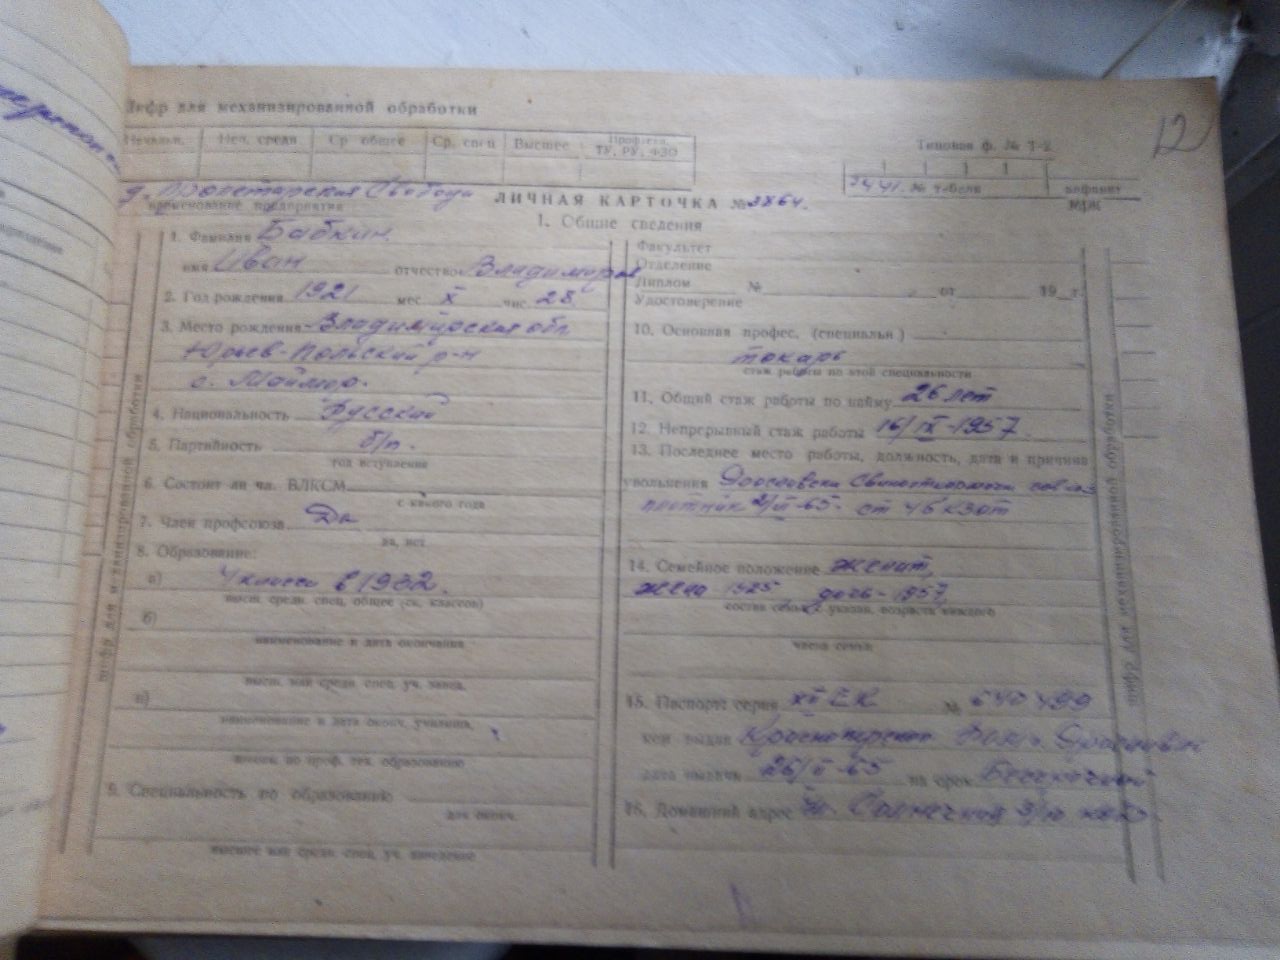 12
Шифр для механизированной обработки
Начальн. Неп. средн Ср общее Ср. спец Высшее Проф-техн. ТУ, РУ, ФЗО
Типовая ф. № Т-2
№ табеля алфавит
ф. Пролетарская Свобода
наименование предприятия
ЛИЧНАЯ КАРТОЧКА № 3864.
1. Общие сведения
1. Фамилия Бабкин
имя Иван отчество Владимиров
2. Год рождения 1921 мес. X чис. 28
3. Место рождения Владимирская обл
Юрьев-Польский р-н
с.
4. Национальность Русский
5. Партийность б/п.
год вступления
6. Состоит ли чл. ВЛКСМ
с какого года
7. Член профсоюза Да
да, нет
8. Образование:
а) 4 класса в 1932.
высш. средн. спец. общее (ск. классов)
б)
наименование и дата окончания
высш. или средн. спец. уч. завед.
в)
наименование и дата оконч. училища,
школы по проф. тех. образованию
9. Специальность по образованию
дат. оконч.
высшее или средн. спец. уч. заведение
Факультет
Отделение
Диплом № от 19 г.
Удостоверение
10. Основная профес. (специальн.)
токарь
стаж работы по этой специальности
11. Общий стаж работы по найму 26 лет
12. Непрерывный стаж работы 16/IX-1957
13. Последнее место работы, должность, дата и причина
увольнения
плотник 2/II-65- ст 46 КЗОТ
14. Семейное положение женат,
жена 1925 дочь-1957,
состав семьи с указан. возраста каждого
члена семьи
15. Паспорт: серия XII ЕК № 640499
кем выдан
дата выдачи 26/II-65 на срок Бессрочный
16. Домашний адрес ул. Солнечная
Шифр для механизированной обработки
Шифр для механизированной обработки